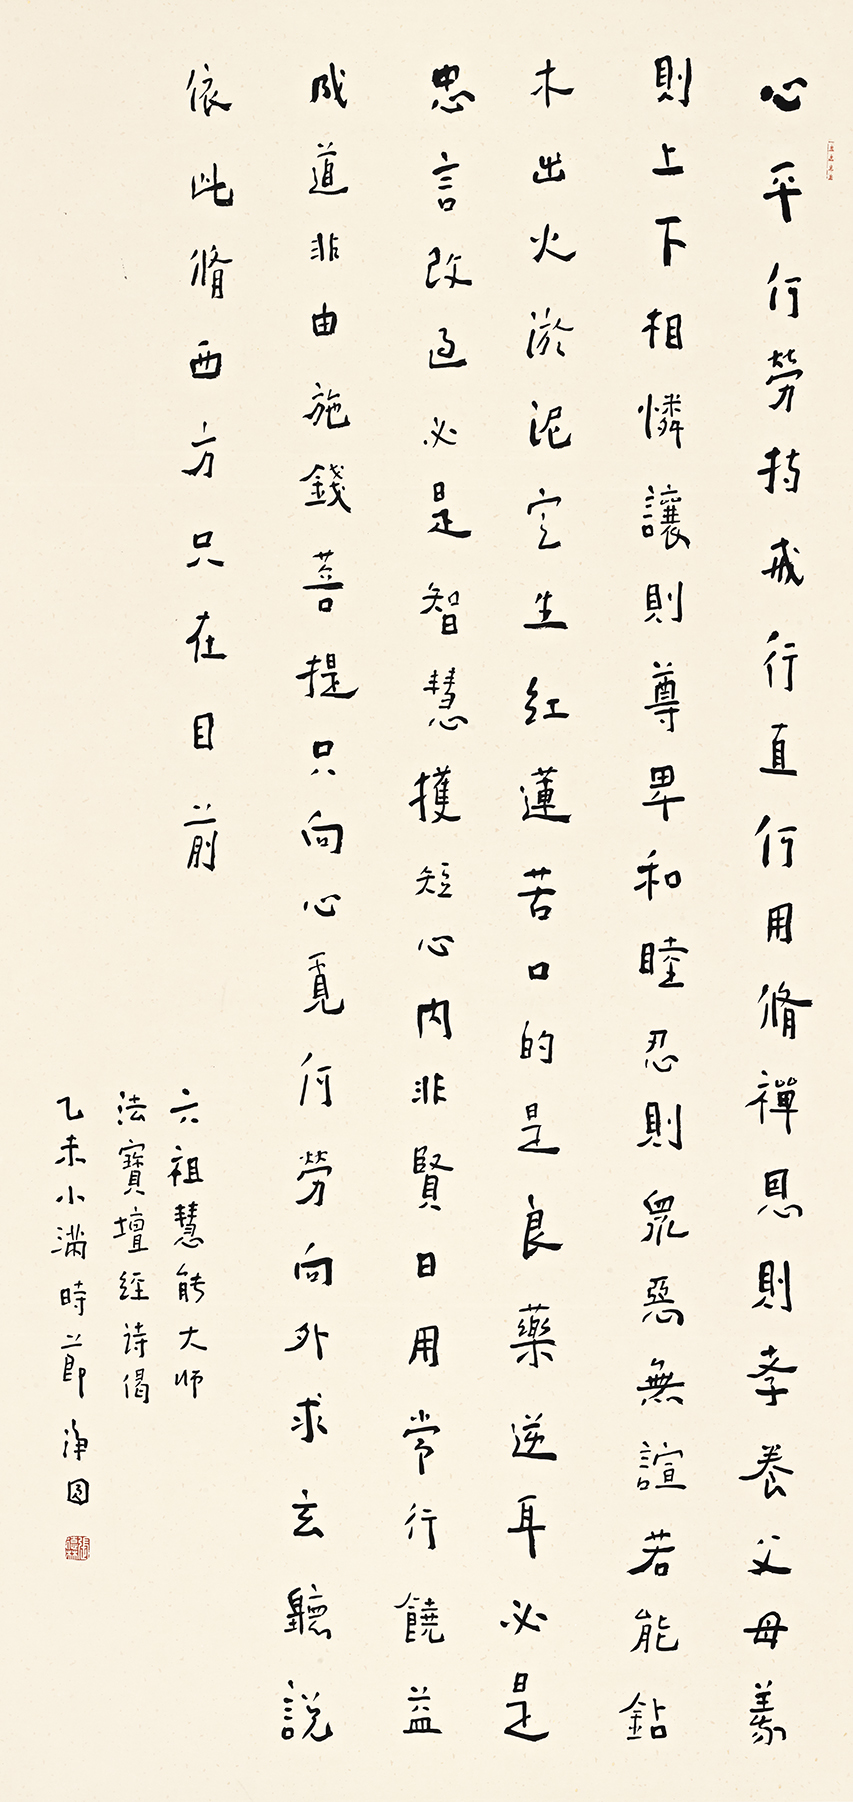 心平何勞持戒行直何用脩禪恩則孝養父母義
則上下相憐讓則尊卑和睦忍則眾惡無諠若能鉆
木出火淤泥定生紅蓮苦口的是良藥逆耳必是
忠言改過必是智慧擭短心內非賢日用常行饒益
成道非由施錢菩提只向心覓何勞向外求玄聽說
依此脩西方只在目前
六祖慧能大师
法寶壇經诗偈
乙未小滿時節淨圆